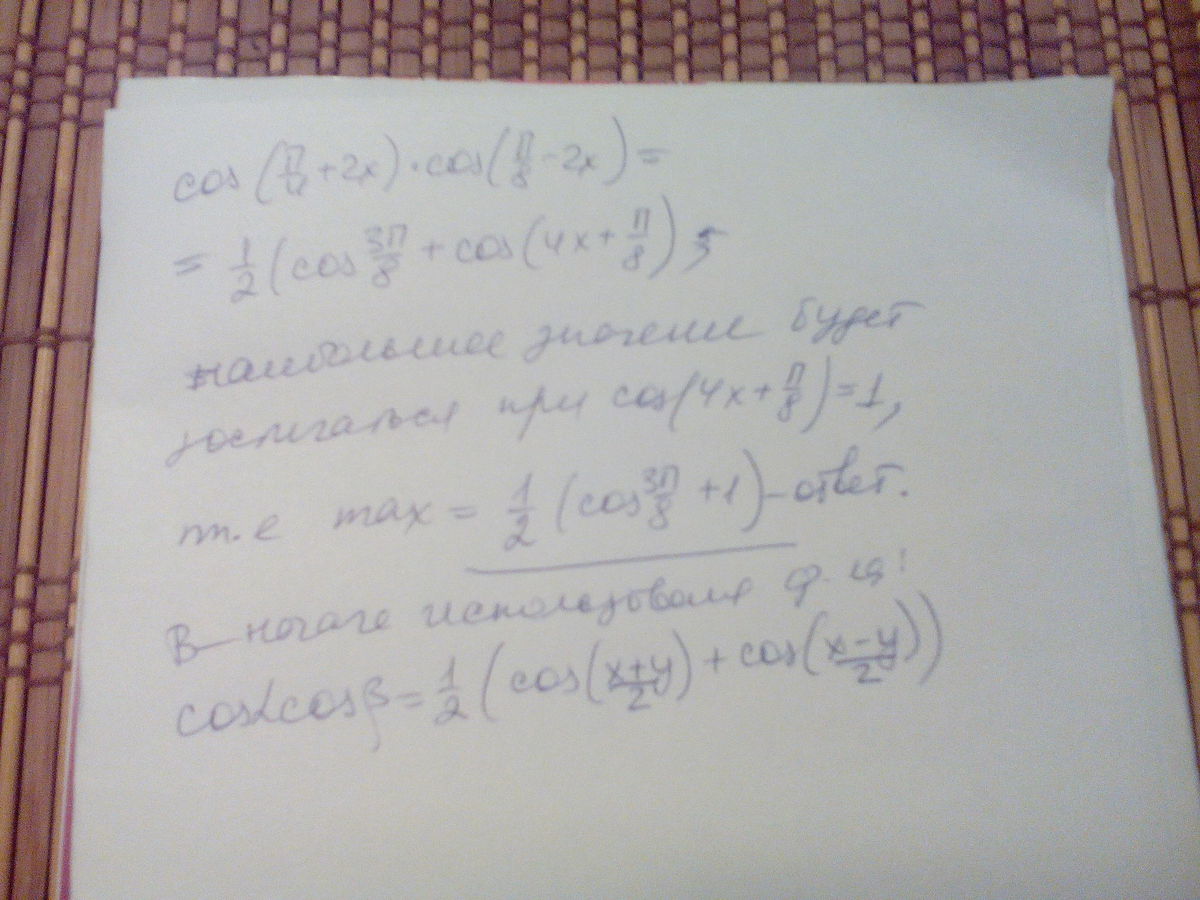 cos(π/4+2x)·cos(π/8-2x)=
= 1/2(cos 3π/8 + cos(4x+π/8);
наибольшее значение будет
достигаться при cos(4x+π/8)=1,
т.е max = 1/2 (cos 3π/8 +1) - ответ.
В начале использовали ф-ла:
cosαcosβ = 1/2 (cos(x+y/2) + cos(x-y/2))